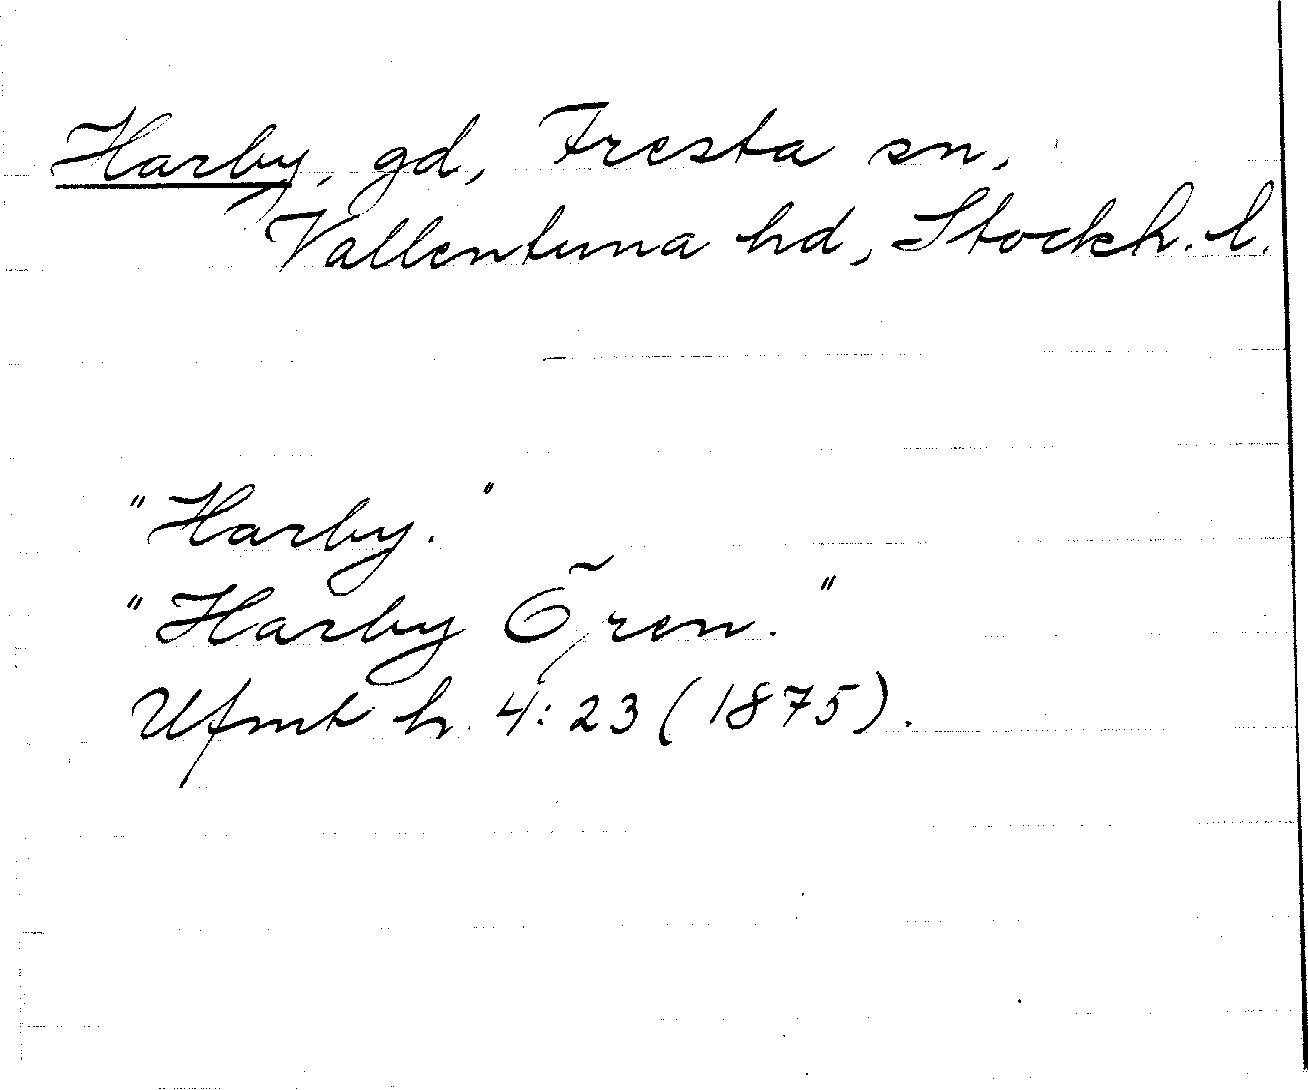 Harby, gd, Fresta sn,
Vallentuna hd, Stockh. l.
"Harby."
"Harby Õren."
Ufmt h. 4:23 (1875).